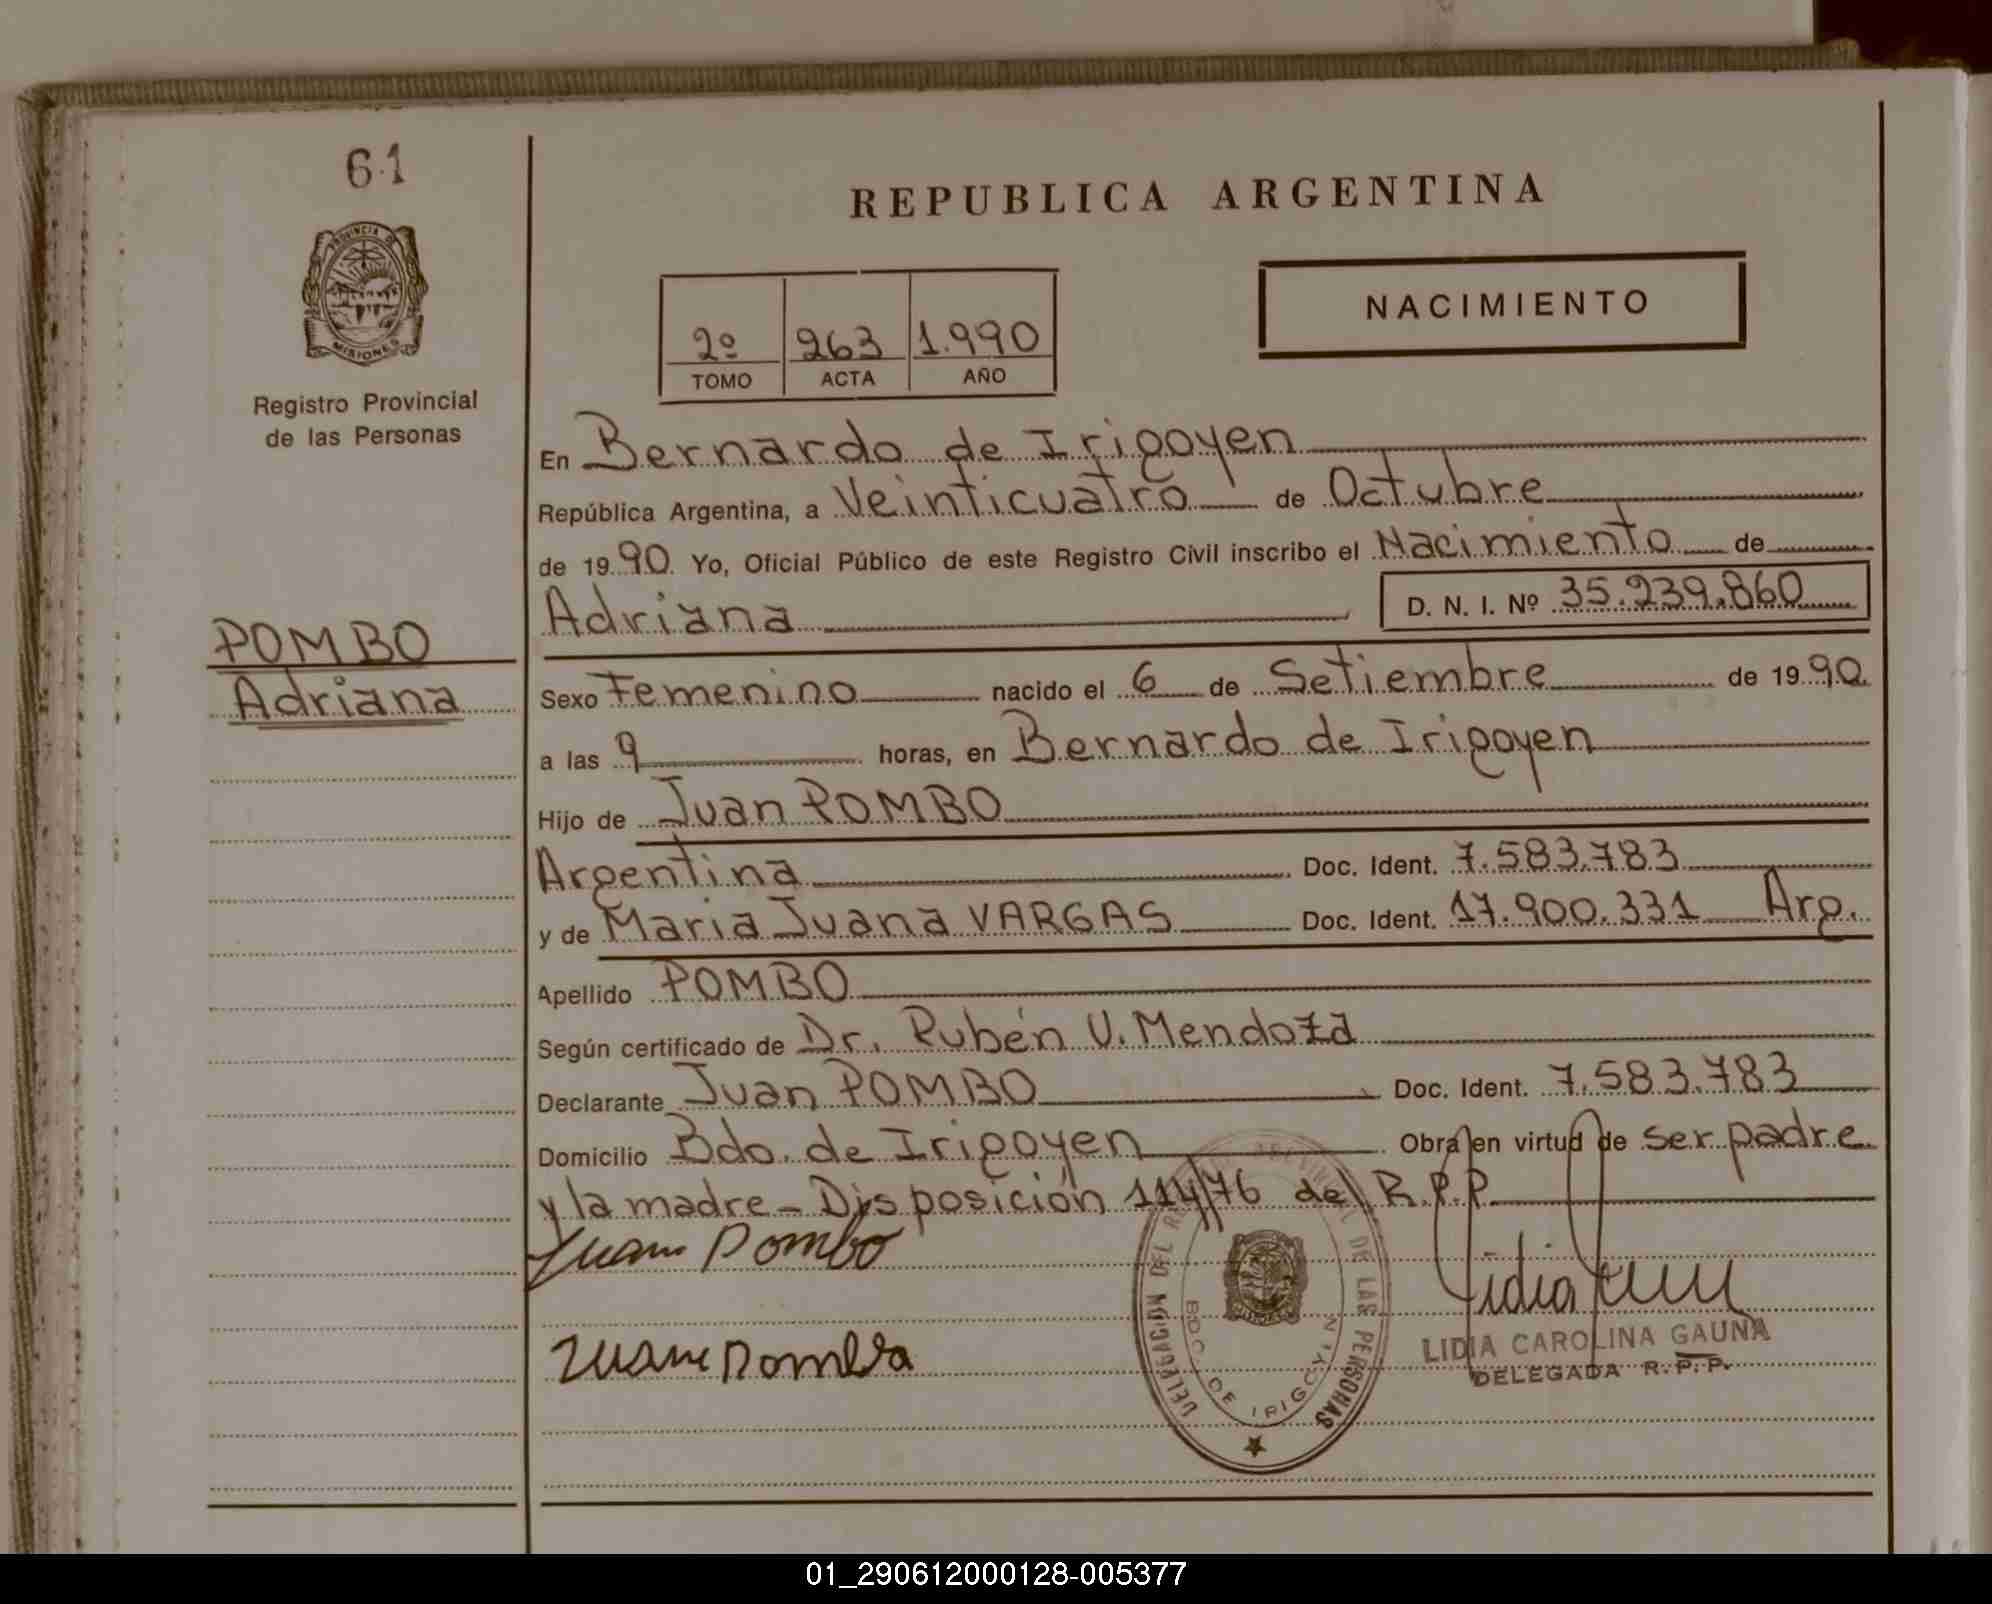 61
PROVINCIA DE
MISIONES
Registro Provincial
de las Personas
POMBO
Adriana
REPUBLICA ARGENTINA
2º 263 1.990
TOMO ACTA AÑO
NACIMIENTO
En Bernardo de Irigoyen
República Argentina, a Veinticuatro de Octubre
de 1990. Yo, Oficial Público de este Registro Civil inscribo el Nacimiento de
Adriana D. N. I. Nº 35.239.860
Sexo Femenino nacido el 6 de Setiembre de 1990.
a las 9 horas, en Bernardo de Irigoyen
Hijo de Juan POMBO
Argentina Doc. Ident. 7.583.783
y de Maria Juana VARGAS Doc. Ident. 17.900.331 Arg.
Apellido POMBO
Según certificado de Dr. Rubén V. Mendoza
Declarante Juan POMBO Doc. Ident. 7.583.783
Domicilio Bdo. de Irigoyen Obra en virtud de ser padre
y la madre - Disposición 114/76 del R.P.P.
Juan Pombo
DELEGACION DEL DE LAS PERSONAS
BDO DE IRIGOYEN
LIDIA CAROLINA GAUNA
DELEGADA R.P.P.
01_290612000128-005377